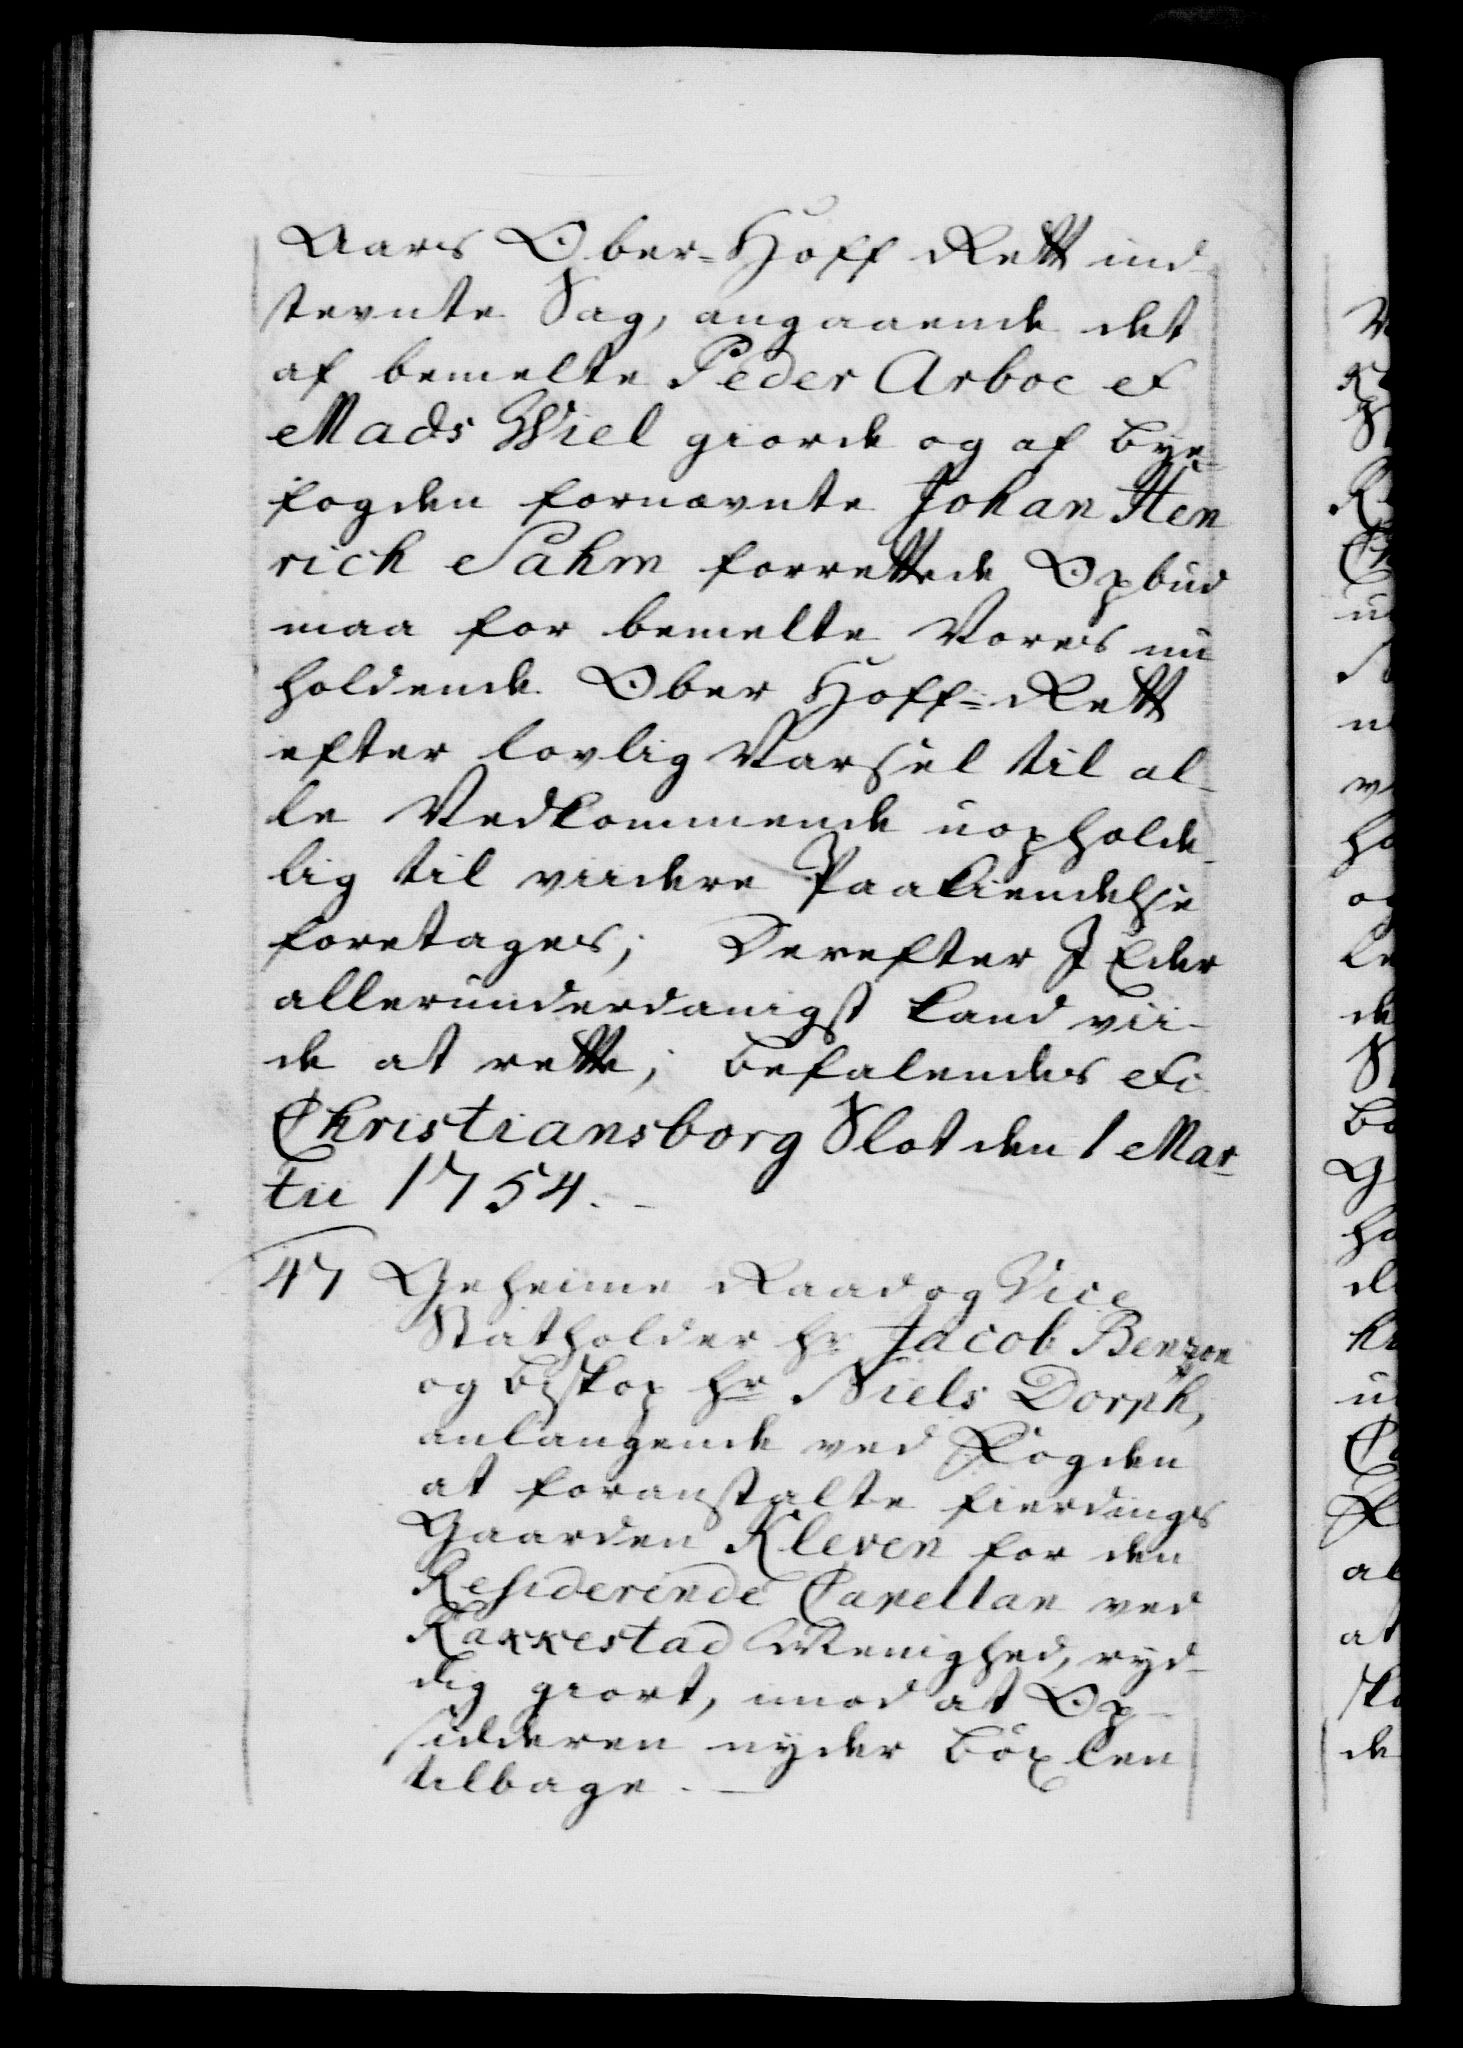 Aars Ober-Hoff Rett ind-
stevnte Sag, angaaende det
af bemelte Peder Arboe et
Mads Wiel giorde og af Bye-
fogden fornævnte Johan Hen
rich Sahm forrettede Opbud
maa for bemelte Vores nu
holdende Ober Hoff-Rett
efter lovlig Varsel til al-
le Vedkommende uopholde-
lig til viidere Paakiendelse
foretages; Derefter I Eder
allerunderdanigst kand vii-
de at rette; Befalendes etc
Christiansborg Slot den 1 Mar-
tii 1754.
47 Geheime Raad og Vice
Statholder hr Jacob Benzon
og Biskop hr Niels Dorph,
anlangende ved Fogden
at foranstalte fierdings
Gaarden Kleven for den
Residerende Capellan ved
Rakkestad Menighed, ryd-
dig giort, imod at Op-
sidderen nyder Böxlen
tilbage.